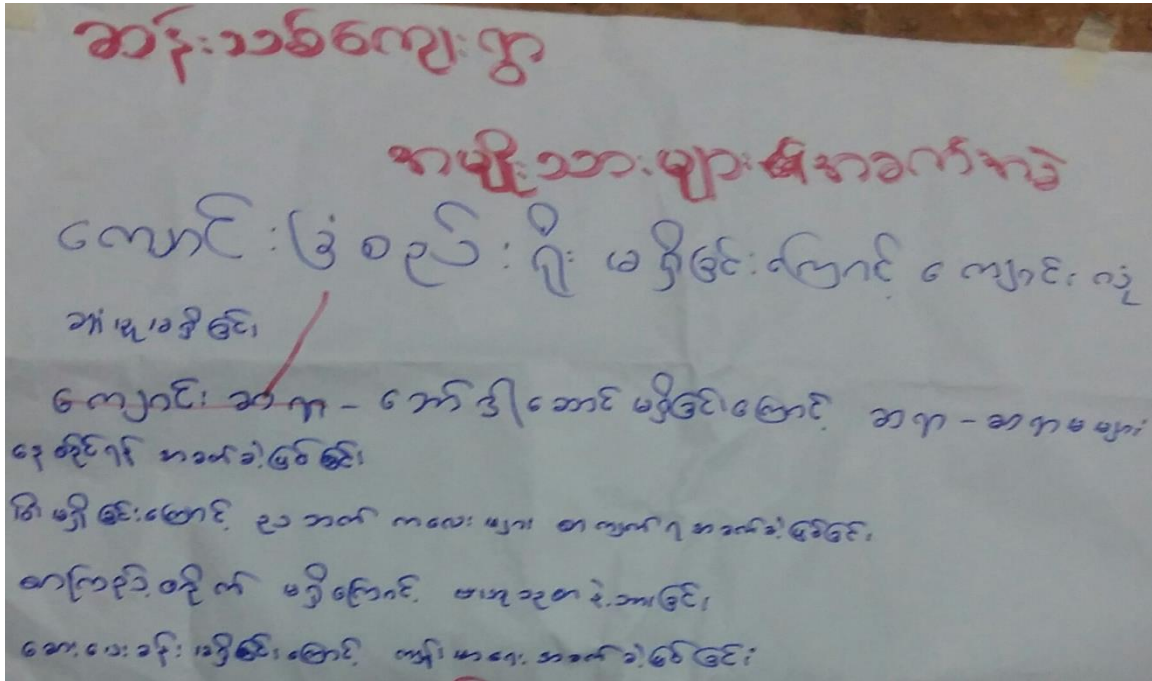 ဆန်းသစ်ကျေးရွာ
အမျိုးသားများ၏အခက်အခဲ
ကျောင်းခြံစည်းရိုး မရှိခြင်းကြောင့် ကျောင်းလုံ
ခြုံမှုမရှိခြင်း
ကျောင်းဆရာ - ဘော်ဒါဆောင် မရှိခြင်းကြောင့် ဆရာ - ဆရာမများ
နေထိုင်ရန် အခက်ခဲဖြစ်ခြင်း
မီး မရှိခြင်းကြောင့် ညဘက် ကလေးများ စာကျက်ရ အခက်ခဲဖြစ်ခြင်း
စာကြည့်တိုက် မရှိကြောင့် ဗဟုသုတ နဲသားခြင်း
ဆေးပေးခန်း မရှိခြင်းကြောင့် ကျန်းမာရေး အခက်ခဲဖြစ်ခြင်း